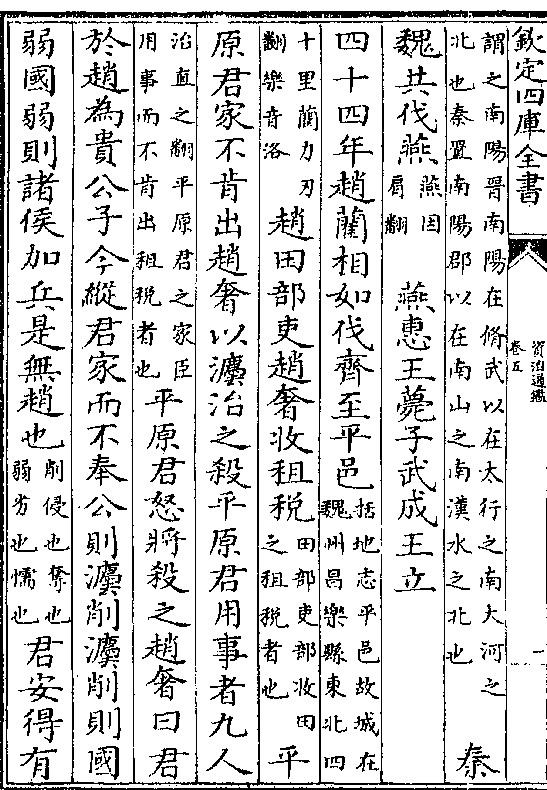 欽定四庫全書
資治通鑑
卷五
謂之南陽晉南陽在脩武以在太行之南大河之
北也秦置南陽郡以在南山之南漢水之北也
秦
魏共伐燕
燕因
肩翻
燕惠王薨子武成王立
四十四年趙藺相如伐齊至平邑
括地志平邑故城在
魏州昌樂縣東北四
十里藺力刃
翻樂音洛
趙田部吏趙奢收租稅
田部吏部收田
之租稅者也
平
原君家不肯出趙奢以灋治之殺平原君用事者九人
治直之翻平原君之家臣
用事而不肯出租稅者也
平原君怒將殺之趙奢曰君
於趙為貴公子今縱君家而不奉公則灋削灋削則國
弱國弱則諸侯加兵是無趙也
削侵也奪也
弱劣也懦也
君安得有